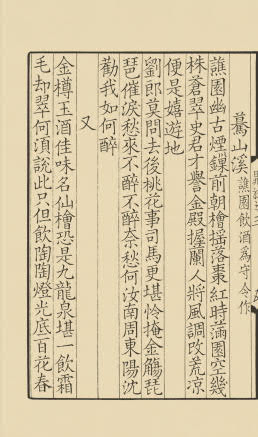 驀山溪 譙園飲酒為守令作
譙園幽古煙鏁前朝檜搖落棗紅時滿園空幾
株蒼翠史君才譽金殿握蘭人將風調改荒凉
便是嬉遊地
劉郎莫問去後桃花事司馬更堪憐掩金觴琵
琶催淚愁來不醉不醉奈愁何汝南周東陽沈
勸我如何醉
又
金樽玉酒佳味名仙檜恐是九龍泉堪一飲霜
毛却翠何須說此只但飲陶陶燈光底百花春